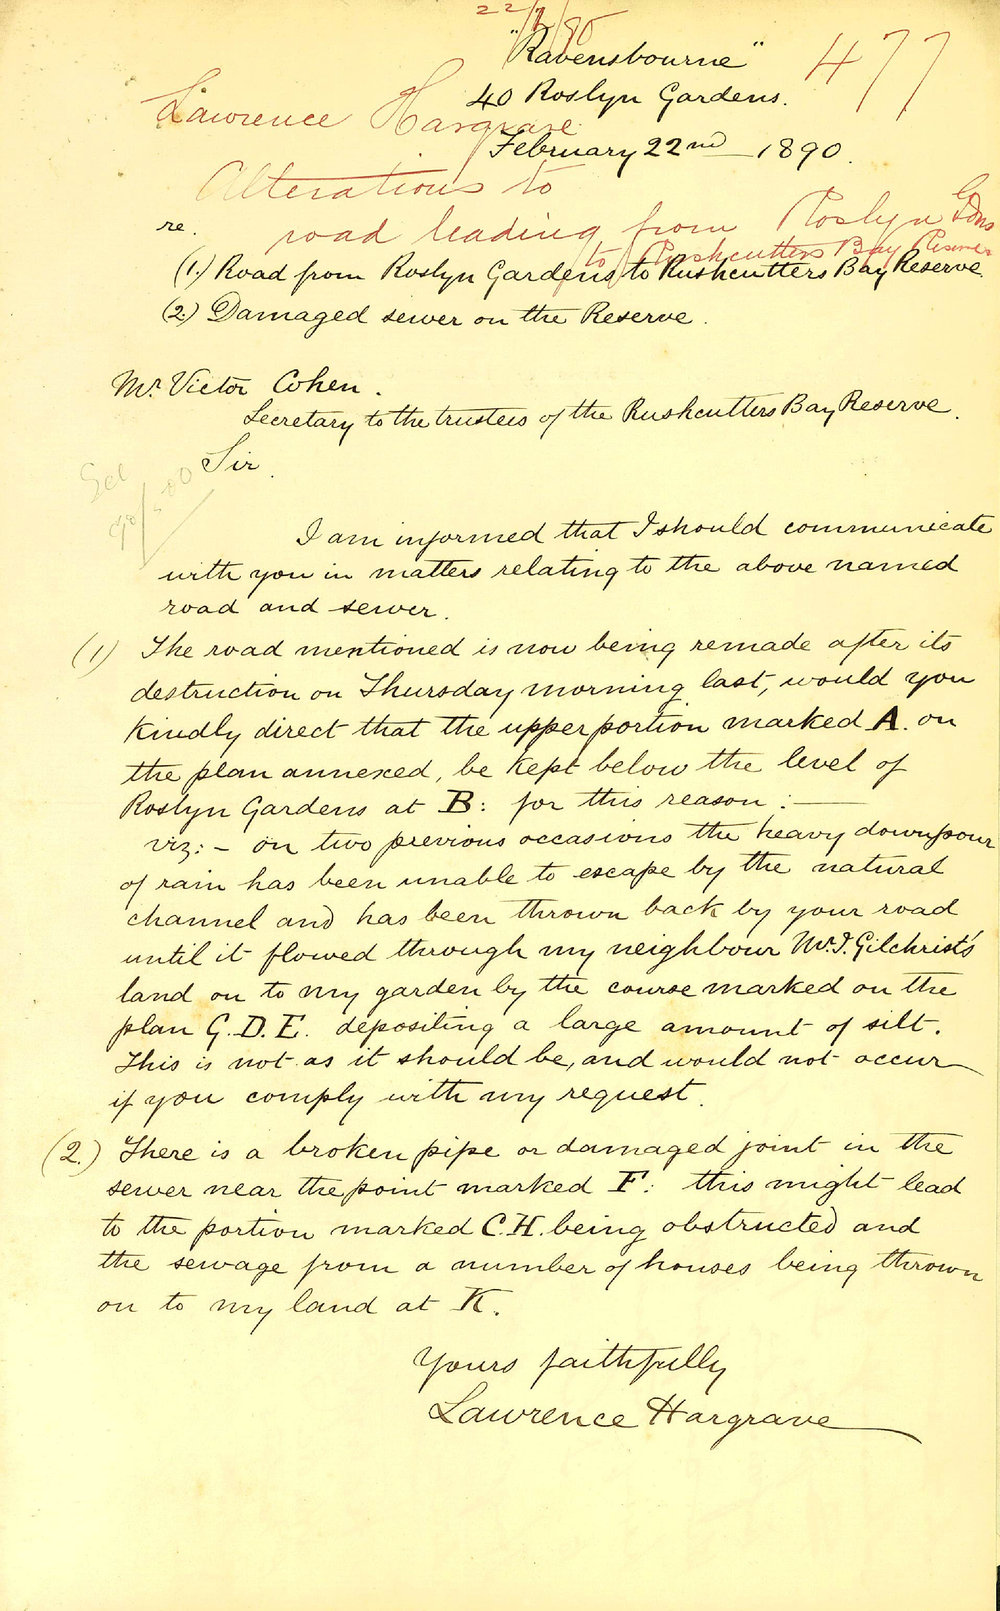 22/2/90
"Ravensbourne"
477
40 Roslyn Gardens.
Lawrence Hargrave
February 22nd 1890.
Alterations to
road leading from Roslyn Gdns
to Rushcutters Bay Reserve
re.
(1.) Road from Roslyn Gardens to Rushcutters Bay Reserve.
(2.) Damaged sewer on the Reserve.
Mr. Victor Cohen.
Secretary to the trustees of the Rushcutters Bay Reserve.
Sir.
I am informed that I should communicate
with you in matters relating to the above named
road and sewer.
(1) The road mentioned is now being remade after its
destruction on Thursday morning last, would you
kindly direct that the upper portion marked A. on
the plan annexed, be kept below the level of
Roslyn Gardens at B: for this reason:—
viz:- on two previous occasions the heavy downpour
of rain has been unable to escape by the natural
channel and has been thrown back by your road
until it flowed through my neighbour Mr. J. Gilchrist's
land on to my garden by the course marked on the
plan G.D.E. depositing a large amount of silt.
This is not as it should be, and would not occur
if you comply with my request.
(2.) There is a broken pipe or damaged joint in the
sewer near the point marked F: this might lead
to the portion marked C.H. being obstructed and
the sewage from a number of houses being thrown
on to my land at K.
Yours faithfully
Lawrence Hargrave